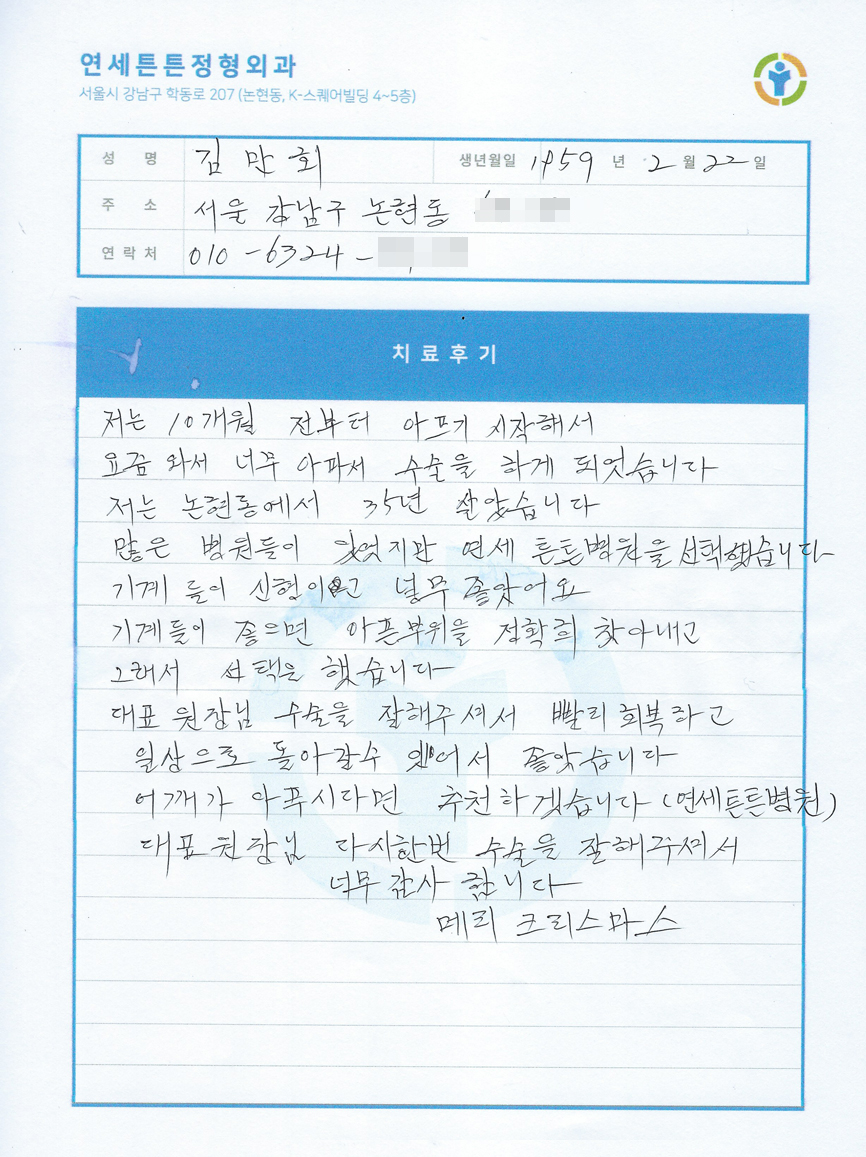 연세튼튼정형외과
서울시 강남구 학동로 207 (논현동, K-스퀘어빌딩 4~5층)
성 명 김만회 생년월일 1959 년 2 월 22 일
주 소 서울 강남구 논현동
연락처 010-6324-
치료후기
저는 10개월 전부터 아프기 시작해서
요금 와서 너무 아파서 수술을 하게 되었습니다
저는 논현동에서 35년 살았습니다
많은 병원들이 있엇지만 연세 튼튼병원을 선택했습니다
기계 들이 신형이고 널무 좋았어요
기계들이 좋으면 아픈부위를 정확희 찾아내고
그래서 선택은 했습니다
대표 원장님 수술을 잘해주셔서 빨리 회복하고
일상으로 돌아갈수 있어서 좋았습니다
어깨가 아푸시다면 추천하겠습니다 (연세튼튼병원)
대표 원장님 다시한번 수술을 잘해주셔서
너무 감사 합니다
메리 크리스마스